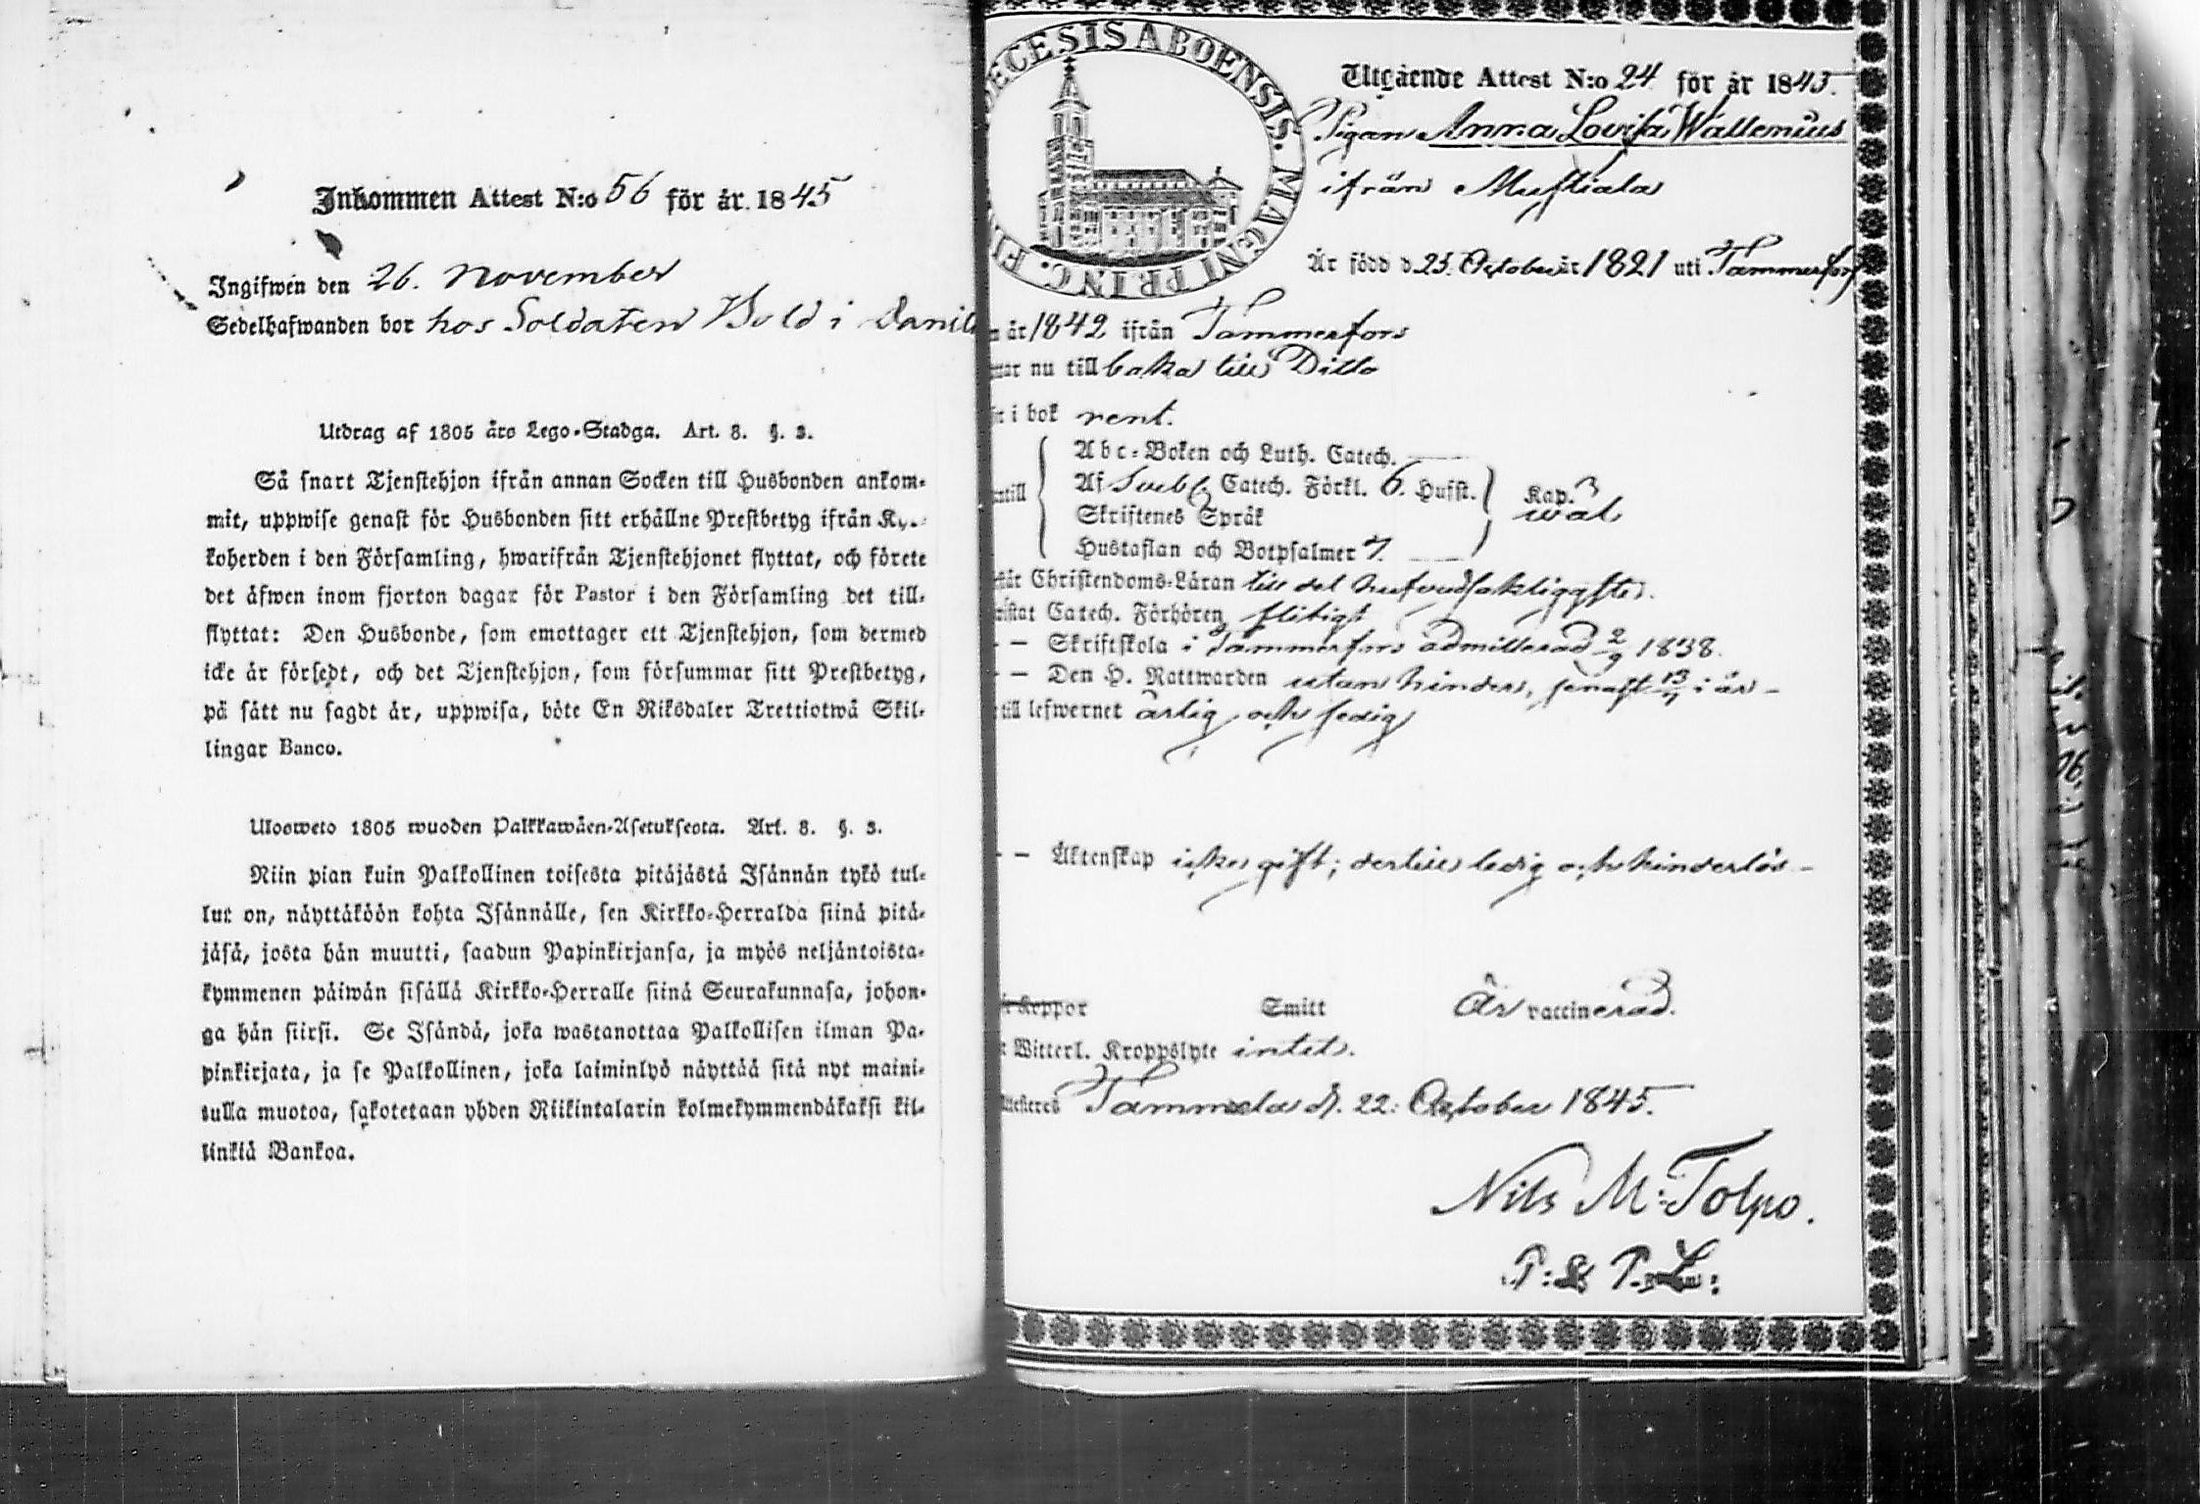 Inkommen Attest N:o 56 för år 1845
Ingifwen den 26. November
Sedelhafwanden bor hos Soldaten Bold i Danil
Utdrag af 1805 års Lego-Stadga. Art. 8. §. 3.
Så snart Tjenstehjon ifrån annan Socken till Husbonden ankom-
mit, uppwise genast för Husbonden sitt erhållne Prestbetyg ifrån Ky.
koherden i den Församling, hwarifrån Tjenstehjonet flyttat, och förete
det äfwen inom fjorton dagar för Pastor i den Församling det till-
flyttat: Den Husbonde, som emottager ett Tjenstehjon, som dermed
icke är försedt, och det Tjenstehjon, som försummar sitt Prestbetyg,
på sätt nu sagdt är, uppwisa, böte En Riksdaler Trettiotwå Skil-
lingar Banco.
Ulosweto 1805 wuoden Palkkawäen-Asetuksesta. Art. 8. §. 3.
Niin pian kuin Palkollinen toisesta pitäjästä Isännän tykö tul-
lut on, näyttäköön kohta Isännälle, sen Kirkko-Herralda siinä pitä-
jäsä, josta hän muutti, saadun Papinkirjansa, ja myös neljäntoista-
kymmenen päiwän sisällä Kirkko-Herralle siinä Seurakunnasa, johon-
ga hän siirsi. Se Isändä, joka wastanottaa Palkollisen ilman Pa-
pinkirjata, ja se Palkollinen, joka laiminlyö näyttää sitä nyt maini-
tulla muotoa, sakotetaan yhden Riikintalarin kolmekymmendäkaksi kil-
linkiä Bankoa.
ECESIS ABOENSIS. MAGNI PRINC. FI
Utgående Attest N:o 24 för år 1845.
Pigan Anna Lovisa Wallenius
ifrån Mustiala
Är född d 25. October år 1821 uti Tammerfors
n år 1842 ifrån Tammerfors
nu tillbaka till Ditto
i bok rent.
Abc-Boken och Luth. Catech.
Af Svebl. Catech. Förkl. 6. Hufst. Kap. 3
Skriftenes Språk wäl
Hustaflan och Botpsalmer 7.
Christendoms-Läran till det hufvudsakligaste.
Catech. Förhören flitigt
— Skriftskola i Tammerfors admitterad 2/9 1838.
— Den H. Nattwarden utan hinder, senast 13/7 i år -
till lefwernet ärlig och sedig
— Äktenskap icke gift; dertill ledig och hinderlös -
Koppor Smitt Är vaccinerad.
Witterl. Kroppslyte intet.
Tammela d. 22. October 1845.
Nils M: Tolpo.